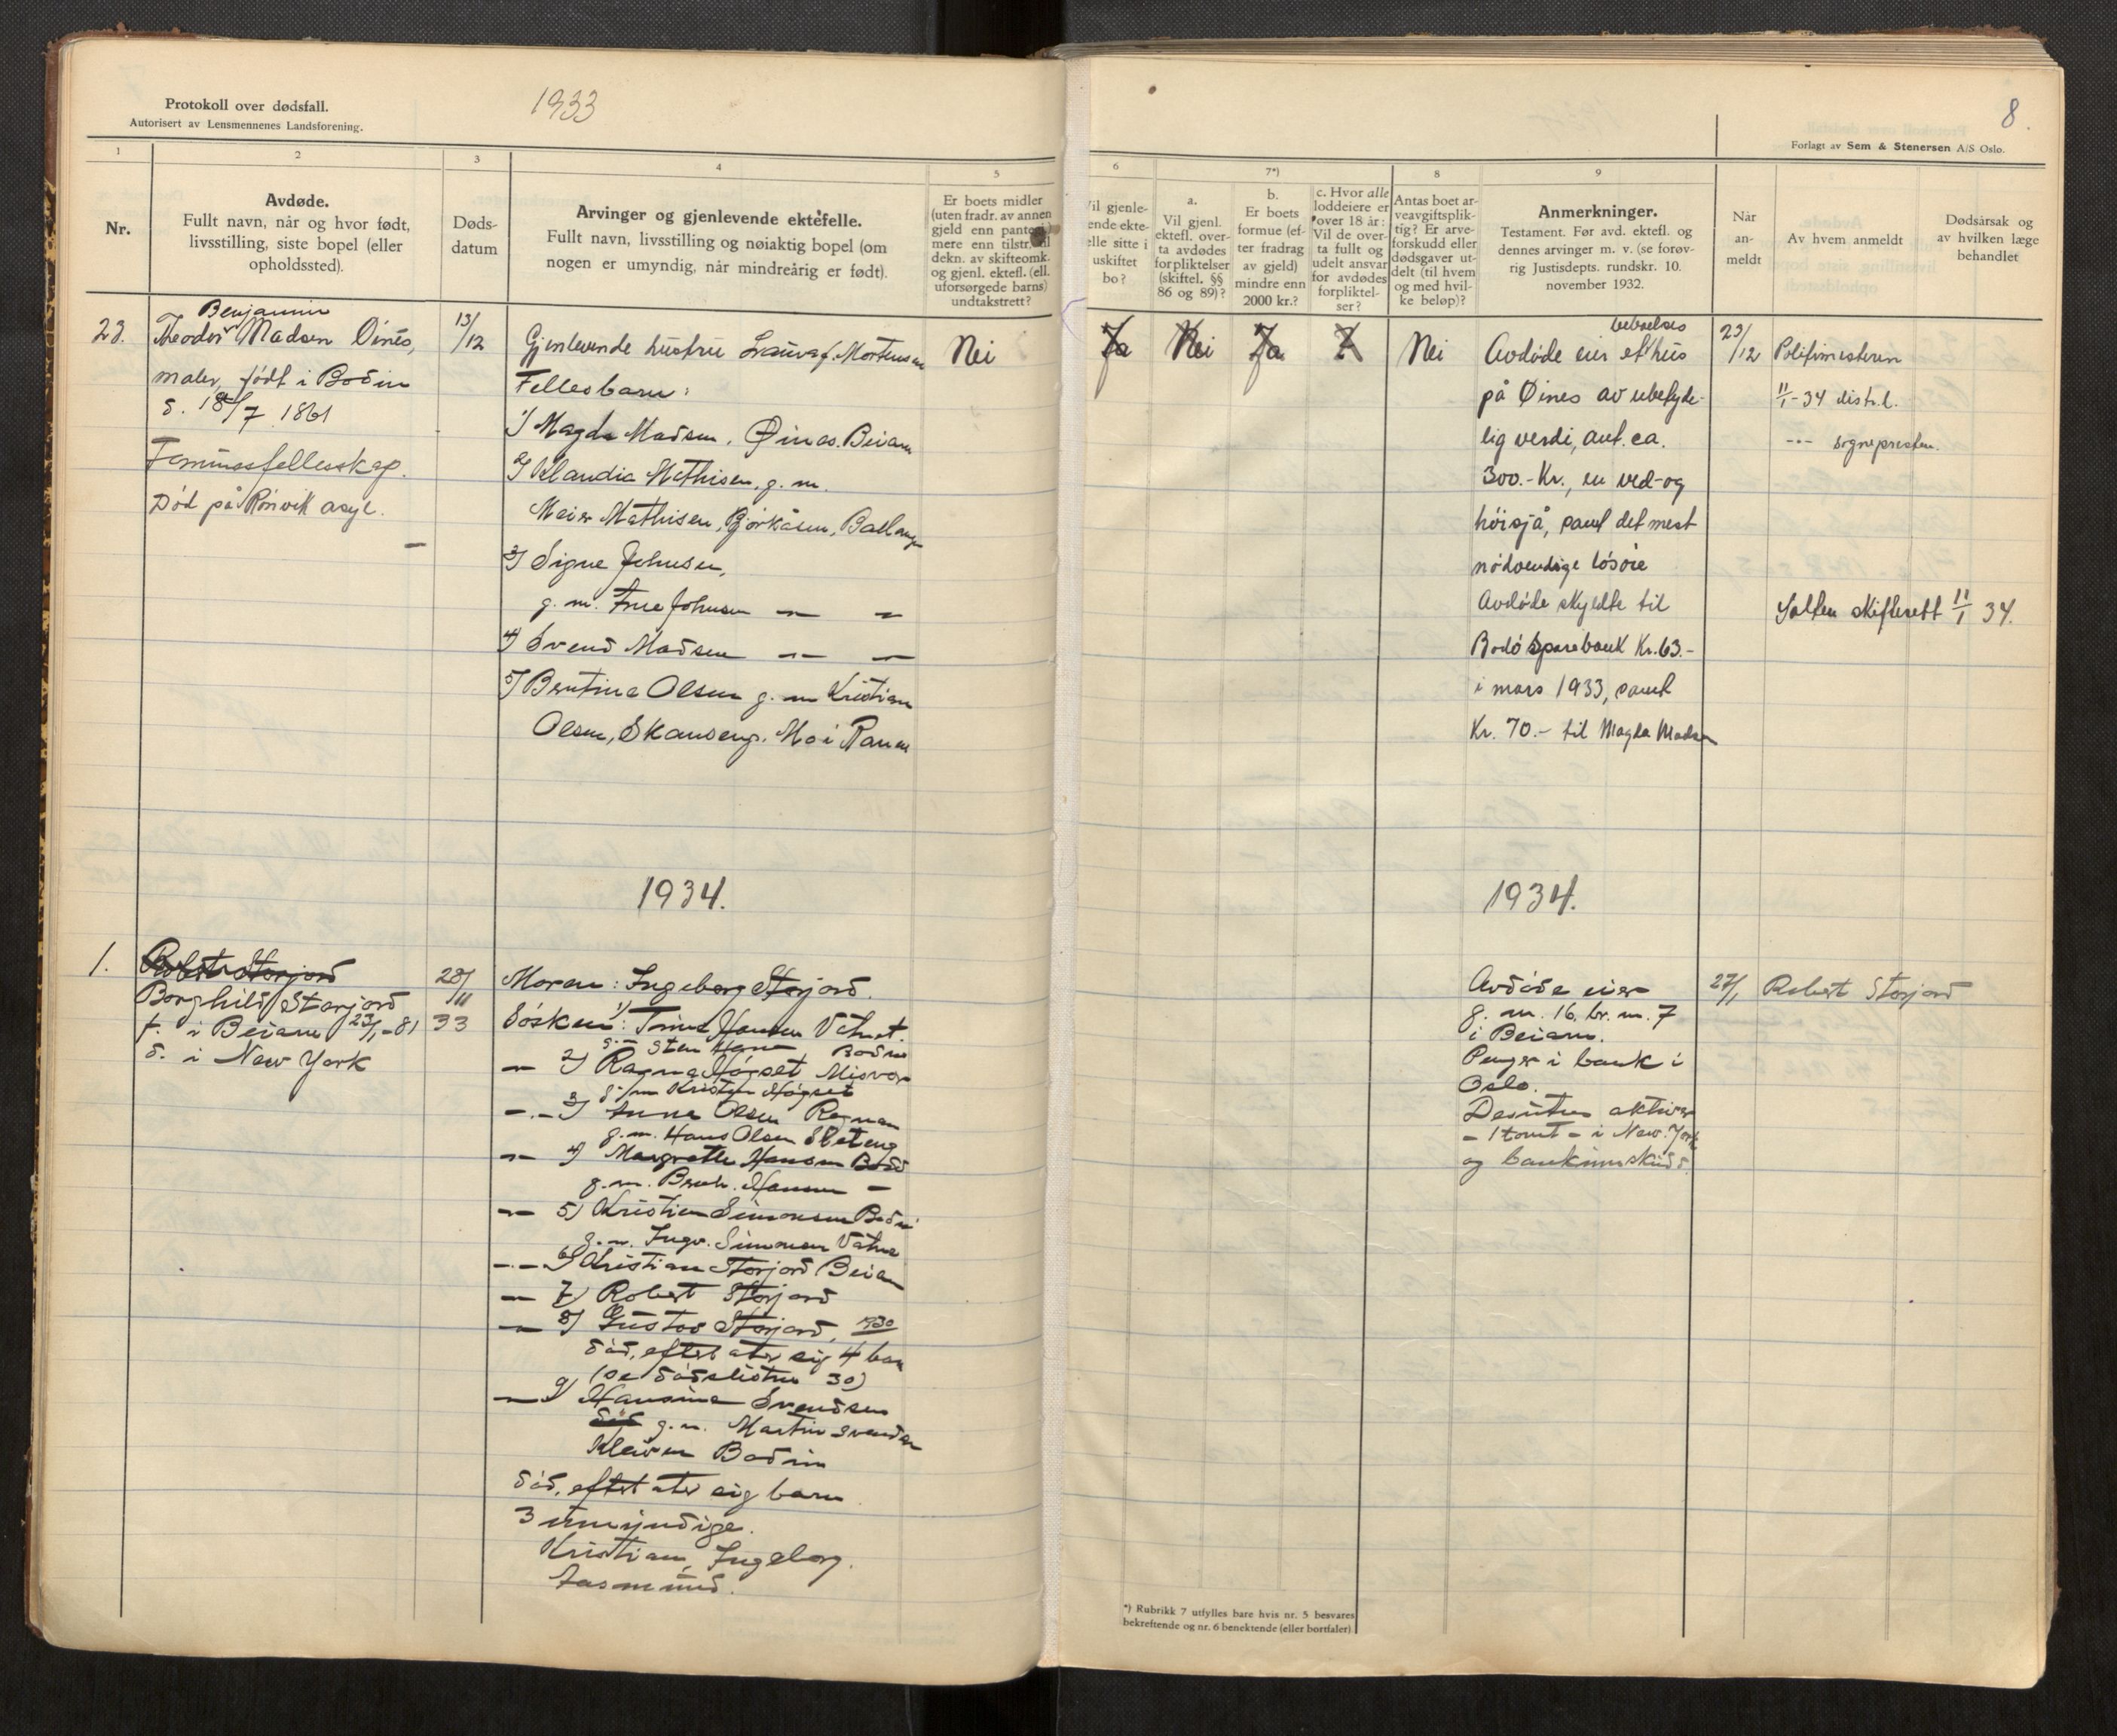 Protokoll over dødsfall.
Autorisert av Lensmennenes Landsforening.
1933
1
2
3
4
5
Nr.
Avdøde.
Fullt navn, når og hvor født,
livsstilling, siste bopel (eller
opholdssted).
Døds-
datum
Arvinger og gjenlevende ektefelle.
Fullt navn, livsstilling og nøiaktig bopel (om
nogen er umyndig, når mindreårig er født).
Er boets midler
(uten fradr. av annen
gjeld enn
mere enn
dekn. av skifteomk.
og gjenl. ektefl. (ell.
uforsørgede barns)
undtakstrett?
23.
Benjamin
Theodor Madsen Øines,
maler, født i Bodin
d. 18/7 1861
Formuesfellesskap.
Død på Rønvik asyl.
13/12
Gjenlevende hustru Laura f. Mortensen
Fellesbarn:
1) Magda Madsen, Øines. Beiarn
2) Klandia Mathisen, g. m.
Meier Mathisen, Bjørkåsen, Ballang
3) Signe Johnsen,
g. m. Johnsen — —
4) Svend Madsen — —
5) Bentine Olsen g. m Kristian
Olsen, Skanseng. Mo i Ranen
Nei
1934.
1.
Robert Storjord
Borghild Storjord
f. i Beiarn 23/1-81
d. i New York
28/11
33
Moren: Ingeborg Storjord.
Søsken: 1) Trine Hansen Vatnet.
g. Sten Bodin
— 2) Ragna Høgset Misvær
g. m Kristen Høgset
—.— 3) Anna Olsen Rognan
g. m. Hans Olsen Sleteng
— 4) Margrethe Hansen Bodø
g. m. Hansen —
— 5) Kristine Simonsen Bodin
g. m. Ingv. Simonsen Vatne
—.— 6) Kristian Storjord Beiarn
— 7) Robert Storjord
— 8) Gustav Storjord, 1930
død, efterlater sig 4 barn
(se dødslisten 30)
— 9) Hansine Svendsen
død g. m. Martin Svendsen
Kleiven Bodin
død, efterlater sig barn
3 umyndige.
Kristian, Ingeborg.
Aasmund.
8.
Forlagt av Sem & Stenersen A/S Oslo.
6
7*)
8
9
Vil gjenle-
ende ekte-
elle sitte i
uskiftet
bo?
a.
Vil gjenl.
ektefl. over-
ta avdødes
forpliktelser
(skiftel. §§
86 og 89)?
b.
Er boets
formue (ef-
ter fradrag
av gjeld)
mindre enn
2000 kr.?
c. Hvor alle
loddeiere er
over 18 år:
Vil de over-
ta fullt og
udelt ansvar
for avdødes
forpliktel-
ser?
Antas boet ar-
veavgiftsplik-
tig? Er arve-
forskudd eller
dødsgaver ut-
delt (til hvem
og med hvil-
ke beløp)?
Anmerkninger.
Testament. Før avd. ektefl. og
dennes arvinger m. v. (se forøv-
rig Justisdepts. rundskr. 10.
november 1932.
Når
an-
meldt
Av hvem anmeldt
Dødsårsak og
av hvilken læge
behandlet
Ja
Nei
Ja
Nei
beboelses
Avdøde eier et hus
på Øines av ubetyde-
lig verdi, ant. ca.
300.- Kr., en ved- og
høisjå, samt det mest
nødvendige løsøre
Avdøde skyldte til
Bodø Sparebank Kr. 63.-
i mars 1933, samt
Kr. 70.- til Magda Madsen
23/12
Politimesteren
11/1-34 distr.l.
-.- sognepresten.
Salten skifterett 11/1 34.
1934.
Avdøde eier
g. nr. 16. br. nr. 7
i Beiarn.
Penger i bank i
Oslo.
Desuten aktiver
- 1 tomt - i New-York
og bankinnskudd.
27/1
Robert Storjord
*) Rubrikk 7 utfylles bare hvis nr. 5 besvares
bekreftende og nr. 6 benektende (eller bortfaler)